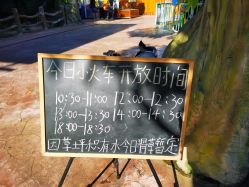 今日小火车开放时间
10:30-11:00 12:00-12:30
13:00-13:30 14:00-14:30
18:00-18:30
因草坪积水今日滑草暂定